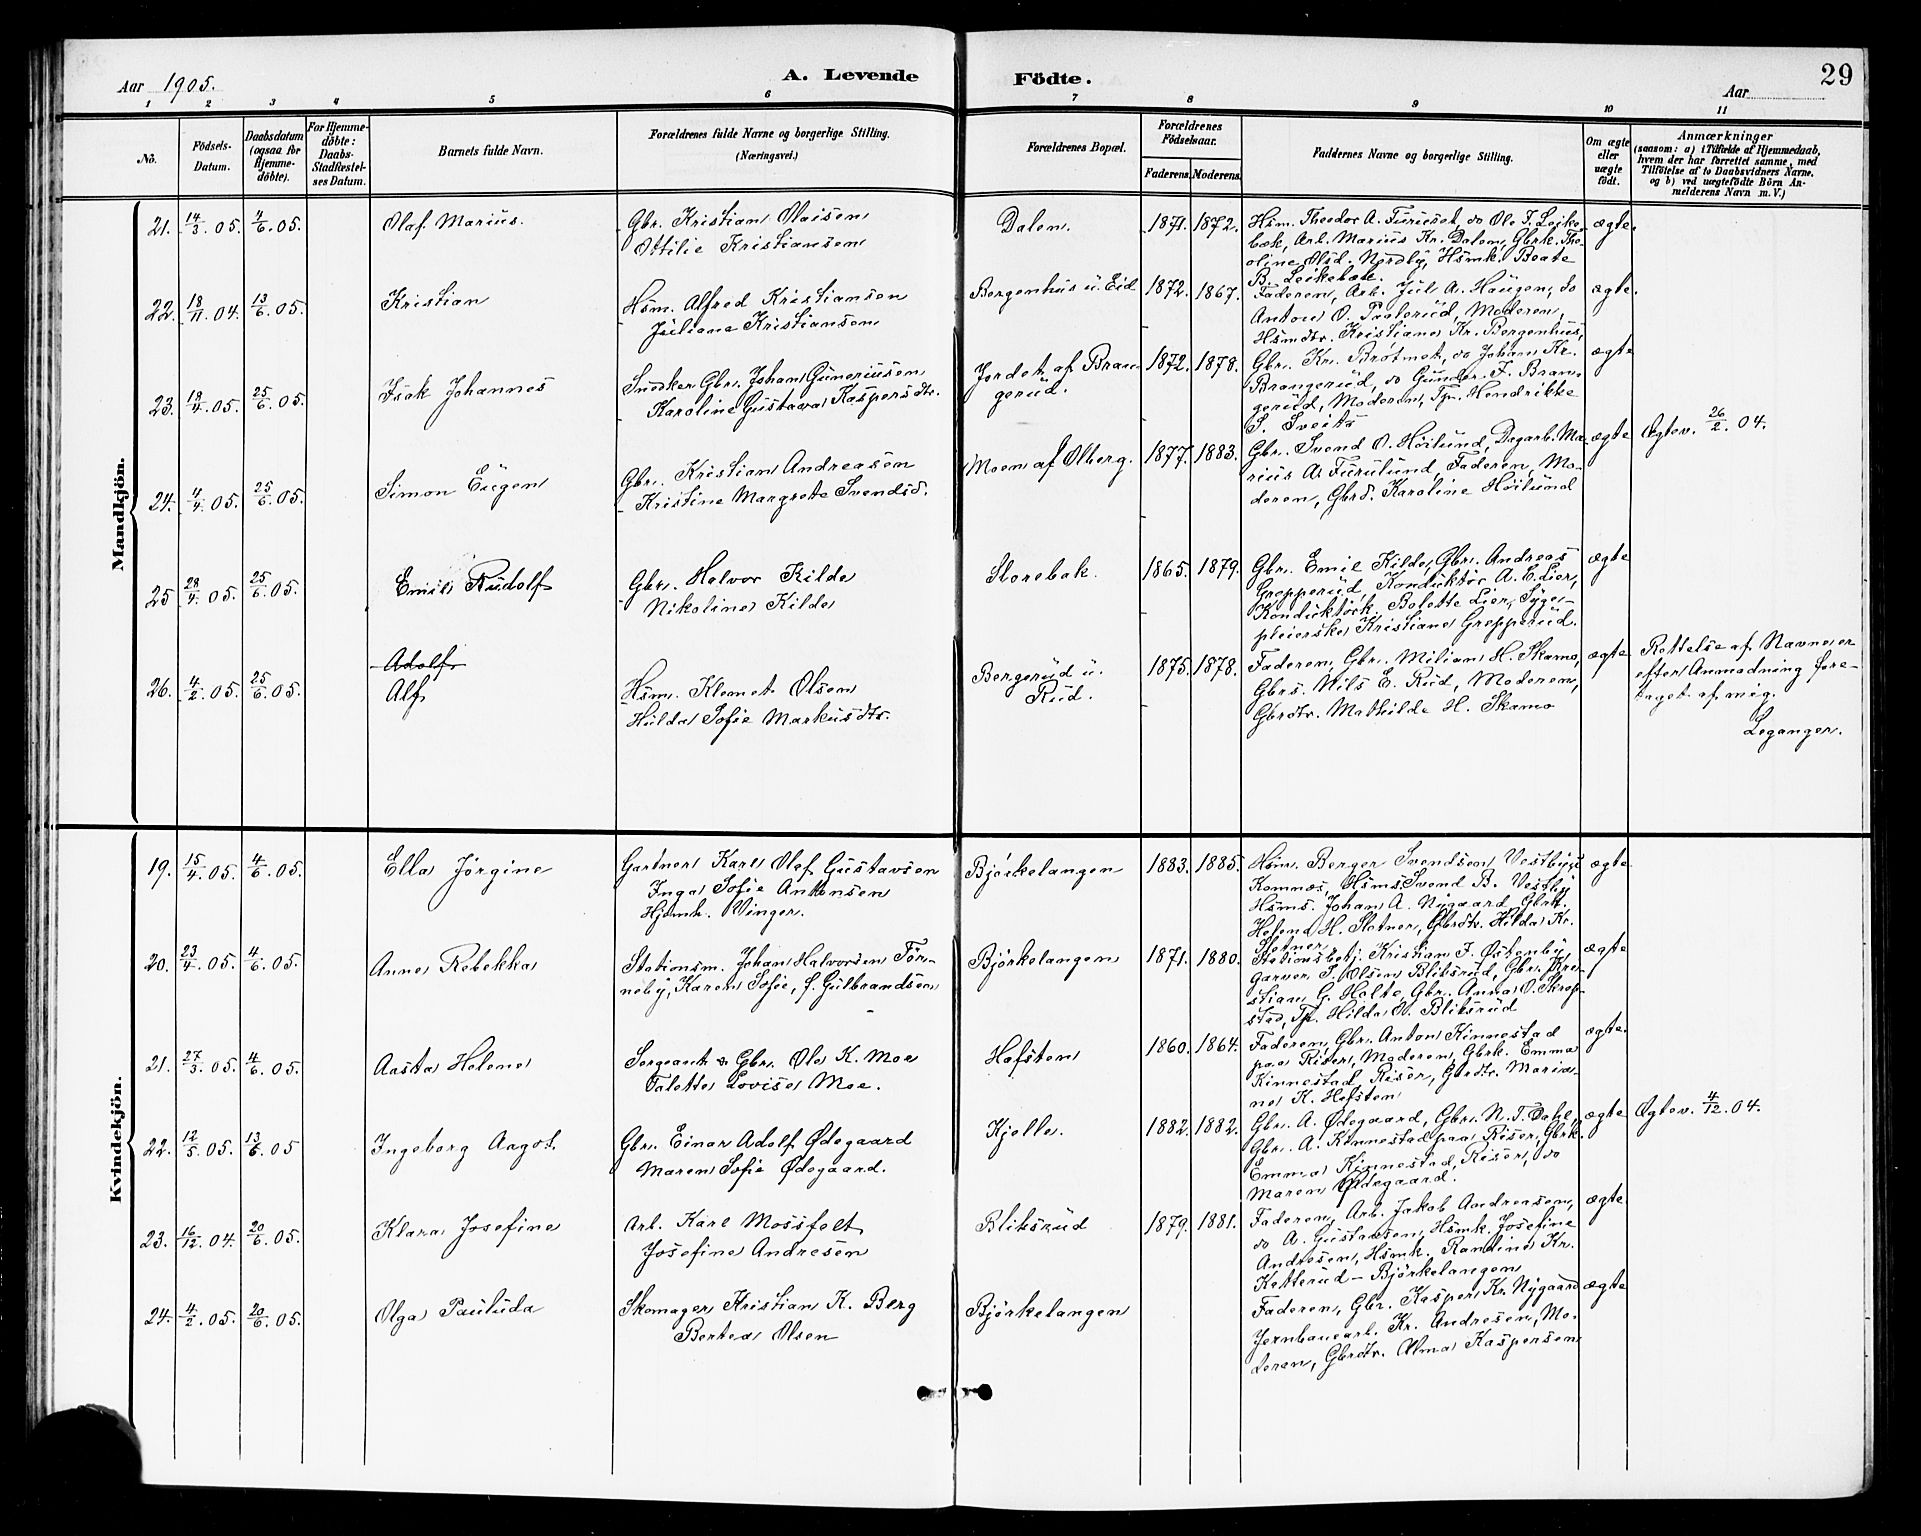 Aar 1905.
A. Levende Födte.
Aar
29
1 2 3 4 5 6 7 8 9 10 11
No.
Födsels-
Datum.
Daabsdatum
(ogsaa for
Hjemme-
döbte).
For Hjemme-
döbte:
Daabs-
Stadfæstel-
ses Datum.
Barnets fulde Navn.
Forældrenes fulde Navne og borgerlige Stilling.
(Næringsvei.)
Forældrenes Bopæl.
Forældrenes
Födselsaar.
Faderens. Moderens.
Faddernes Navne og borgerlige Stilling.
Om ægte
eller
uægte
födt.
Anmærkninger
(saasom: a) i Tilfælde af Hjemmedaab,
hvem der har forrettet samme, med
Tilföielse af to Daabsvidners Navne,
og b) ved uægtefödte Börn An-
melderens Navn m. V.)
Mandkjön.
21. 14/3 05. 4/6 05.
Olaf Marius.
Gbr. Kristian Olaisen
Ottilie Kristiansen
Dalen.
1871. 1872.
Hsm. Theodor A. Furuset, do Ole J. Leike-
bæk, Arb. Marius Kr. Dalen, Gbrk. Tho-
oline Olsd. Nordby, Hsmk. Beate
B. Leikebæk.
ægte.
22. 18/11 04. 13/6 05.
Kristian
Hsm. Alfred Kristiansen
Juliane Kristiansen
Bergenhus u. Eid
1872. 1867.
Faderen, Arb. Jul A. Haugen, do
Anton O. Paalerud, Moderen,
Hsmdtr. Kristiane Kr. Bergenhus.
ægte.
23. 18/4 05. 25/6 05.
Isak Johannes
Snedker Gbr. Johan Guneriusen
Karoline Gustava Kaspersdtr.
Jordet af Bran-
gerud.
1872. 1878.
Gbr. Kr. Brøtmet, do Johan Kr.
Brangerud, do Gunder F. Bran-
gerud, Moderen, Tp. Hendrikke
S. Sveits
ægte
24. 4/4 05. 25/6 05.
Simon Eugen
Gbr. Kristian Andreasen
Kristine Margrete Svendsd.
Moen af Ølberg.
1877. 1883.
Gbr. Svend O. Høilund, Dagarb. Ma-
rius A. Furulund, Faderen, Mo-
deren, Gbrd. Karoline Høilund
ægte
Ægtev. 26/2 04.
25 28/4 05. 25/6 05.
Emil Rudolf
Gbr. Halvor Kilde
Nikoline Kilde
Storebak.
1865. 1879.
Gbr. Emil Kilde, Gbr. Andreas
Grepperud, Konduktör A. E. Lier,
Konduktörk. Bolette Lier, Syge-
pleierske Kristiane Grepperud.
ægte
26. 4/2 05. 25/6 05.
Adolf
Alf
Hsm. Klemet Olsen
Hulda Sofie Markusdtr.
Bergerud u.
Rud.
1875. 1878.
Faderen, Gbr. Milian H. Skamo,
Gbrs. Nils E. Rud, Moderen,
Gbrdtr. Mathilde H. Skamo
ægte
Rettelse af Navnet er
efter Anmodning fore-
taget af mig.
Leganger.
Kvindekjön.
19. 15/4 05. 4/6 05.
Ella Jørgine
Gartner Karl Olaf Gustavsen
Inga Sofie Antonsen
Hjemh. Vinger.
Bjørkelangen
1883. 1885.
Hsm. Berger Svendsen Vestbys
Komnæs, Hsms. Svend B. Vestby
Hsms. Johan A. Nygaard, Gbrk.
Helena H. Slotner, Gbrdtr. Hilda Kr.
Slotner.
ægte
20. 23/4 05. 4/6 05.
Anna Rebekka
Stationsm. Johan Halvorsen Tör-
neby, Karen Sofie, f. Gulbrandsen
Bjørkelangen
1871. 1880.
Stationsbetj. Kristian J. Østenby,
garver J. Olsen Bliksrud, Gbr. Kri-
stian G. Holte, Gbr. Anna O. Skrep-
stad, Tp. Hilda O. Bliksrud
ægte
21. 27/3 05. 4/6 05.
Aasta Helene
Sergeant & Gbr. Ole K. Moe
Talette Lovise Moe.
Hofsten
1860. 1864.
Faderen, Gbr. Anton Kinnestad
paa Riser, Moderen, Gbrk. Emma
Kinnestad, Riser, Gbrdtr. Maria-
ne K. Hofsten
ægte.
22. 12/5 05. 13/6 05
Ingeborg Aagot.
Gbr. Einar Adolf Ødegaard
Maren Sofie Ødegaard.
Kjelle.
1882. 1882.
Gbr. A. Ødegaard, Gbr. N. T. Dahl,
Gbr. A. Kinnestad paa Riser, Gbrk.
Emma Kinnestad, Riser, do
Maren Ødegaard.
ægte
Ægtev. 4/12 04.
23. 16/12 04. 20/6 05.
Klara Josefine
Arb. Karl Mossfelt
Josefine Andresen
Bliksrud
1879. 1881.
Faderen, Arb. Jakob Andreasen,
do A. Gustavsen, Hsmk. Josefine
Andresen, Hsmk. Randine Kr.
Ketterud - Bjørkelangen
ægte
24. 4/2 05. 20/6 05.
Olga Pauluda
Skomager Kristian K. Berg
Bertea Olsen
Bjørkelangen
Faderen, Gbr. Kasper Kr. Nygaard
Jernbanearb. Kr. Andresen, Mo-
deren, Gbrdtr. Alma Kaspersen
ægte